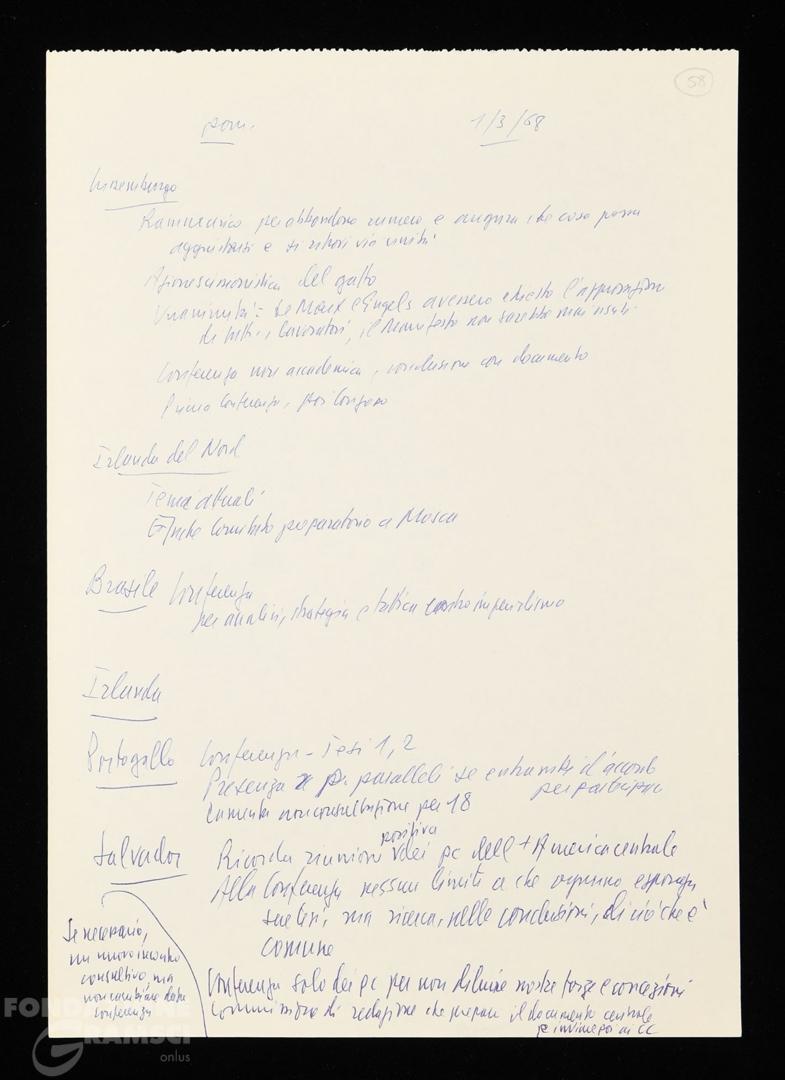 58
pom.
1/3/68
Lussemburgo
Rammarico per abbandono rumeno e augura che cosa possa
aggiustarsi e si ritrovi via unità
del gatto
Unanimità: se Marx e Engels avessero chiesto l'approvazione
di tutti i lavoratori, il Manifesto non sarebbe mai
Conferenza non accademica, conclusione con documento
Prima Conferenza, poi
Irlanda del Nord
Temi attuali
Comitato preparatorio a Mosca
Brasile Conferenza
per analisi, strategia e tattica contro imperialismo
Irlanda
Portogallo Conferenza - Tesi 1, 2
Presenza pc paralleli se entrambi d'accordo
per participare
Lamenta non consultazione per 18
positiva
Salvador Ricorda riunione dei pc dell'America centrale
Alla Conferenza nessun limite a che ognuno esponga
sue tesi, ma ricerca, nelle conclusioni, di ciò che è
comune
Se necessario,
un nuovo incontro
consultivo ma
non cambiare data
conferenza
Conferenza solo dei pc per non diluire nostre forze e concezioni
Commissione di redazione che prepari il documento centrale
e invii poi ai CC
FONDAZIONE
GRAMSCI
onlus